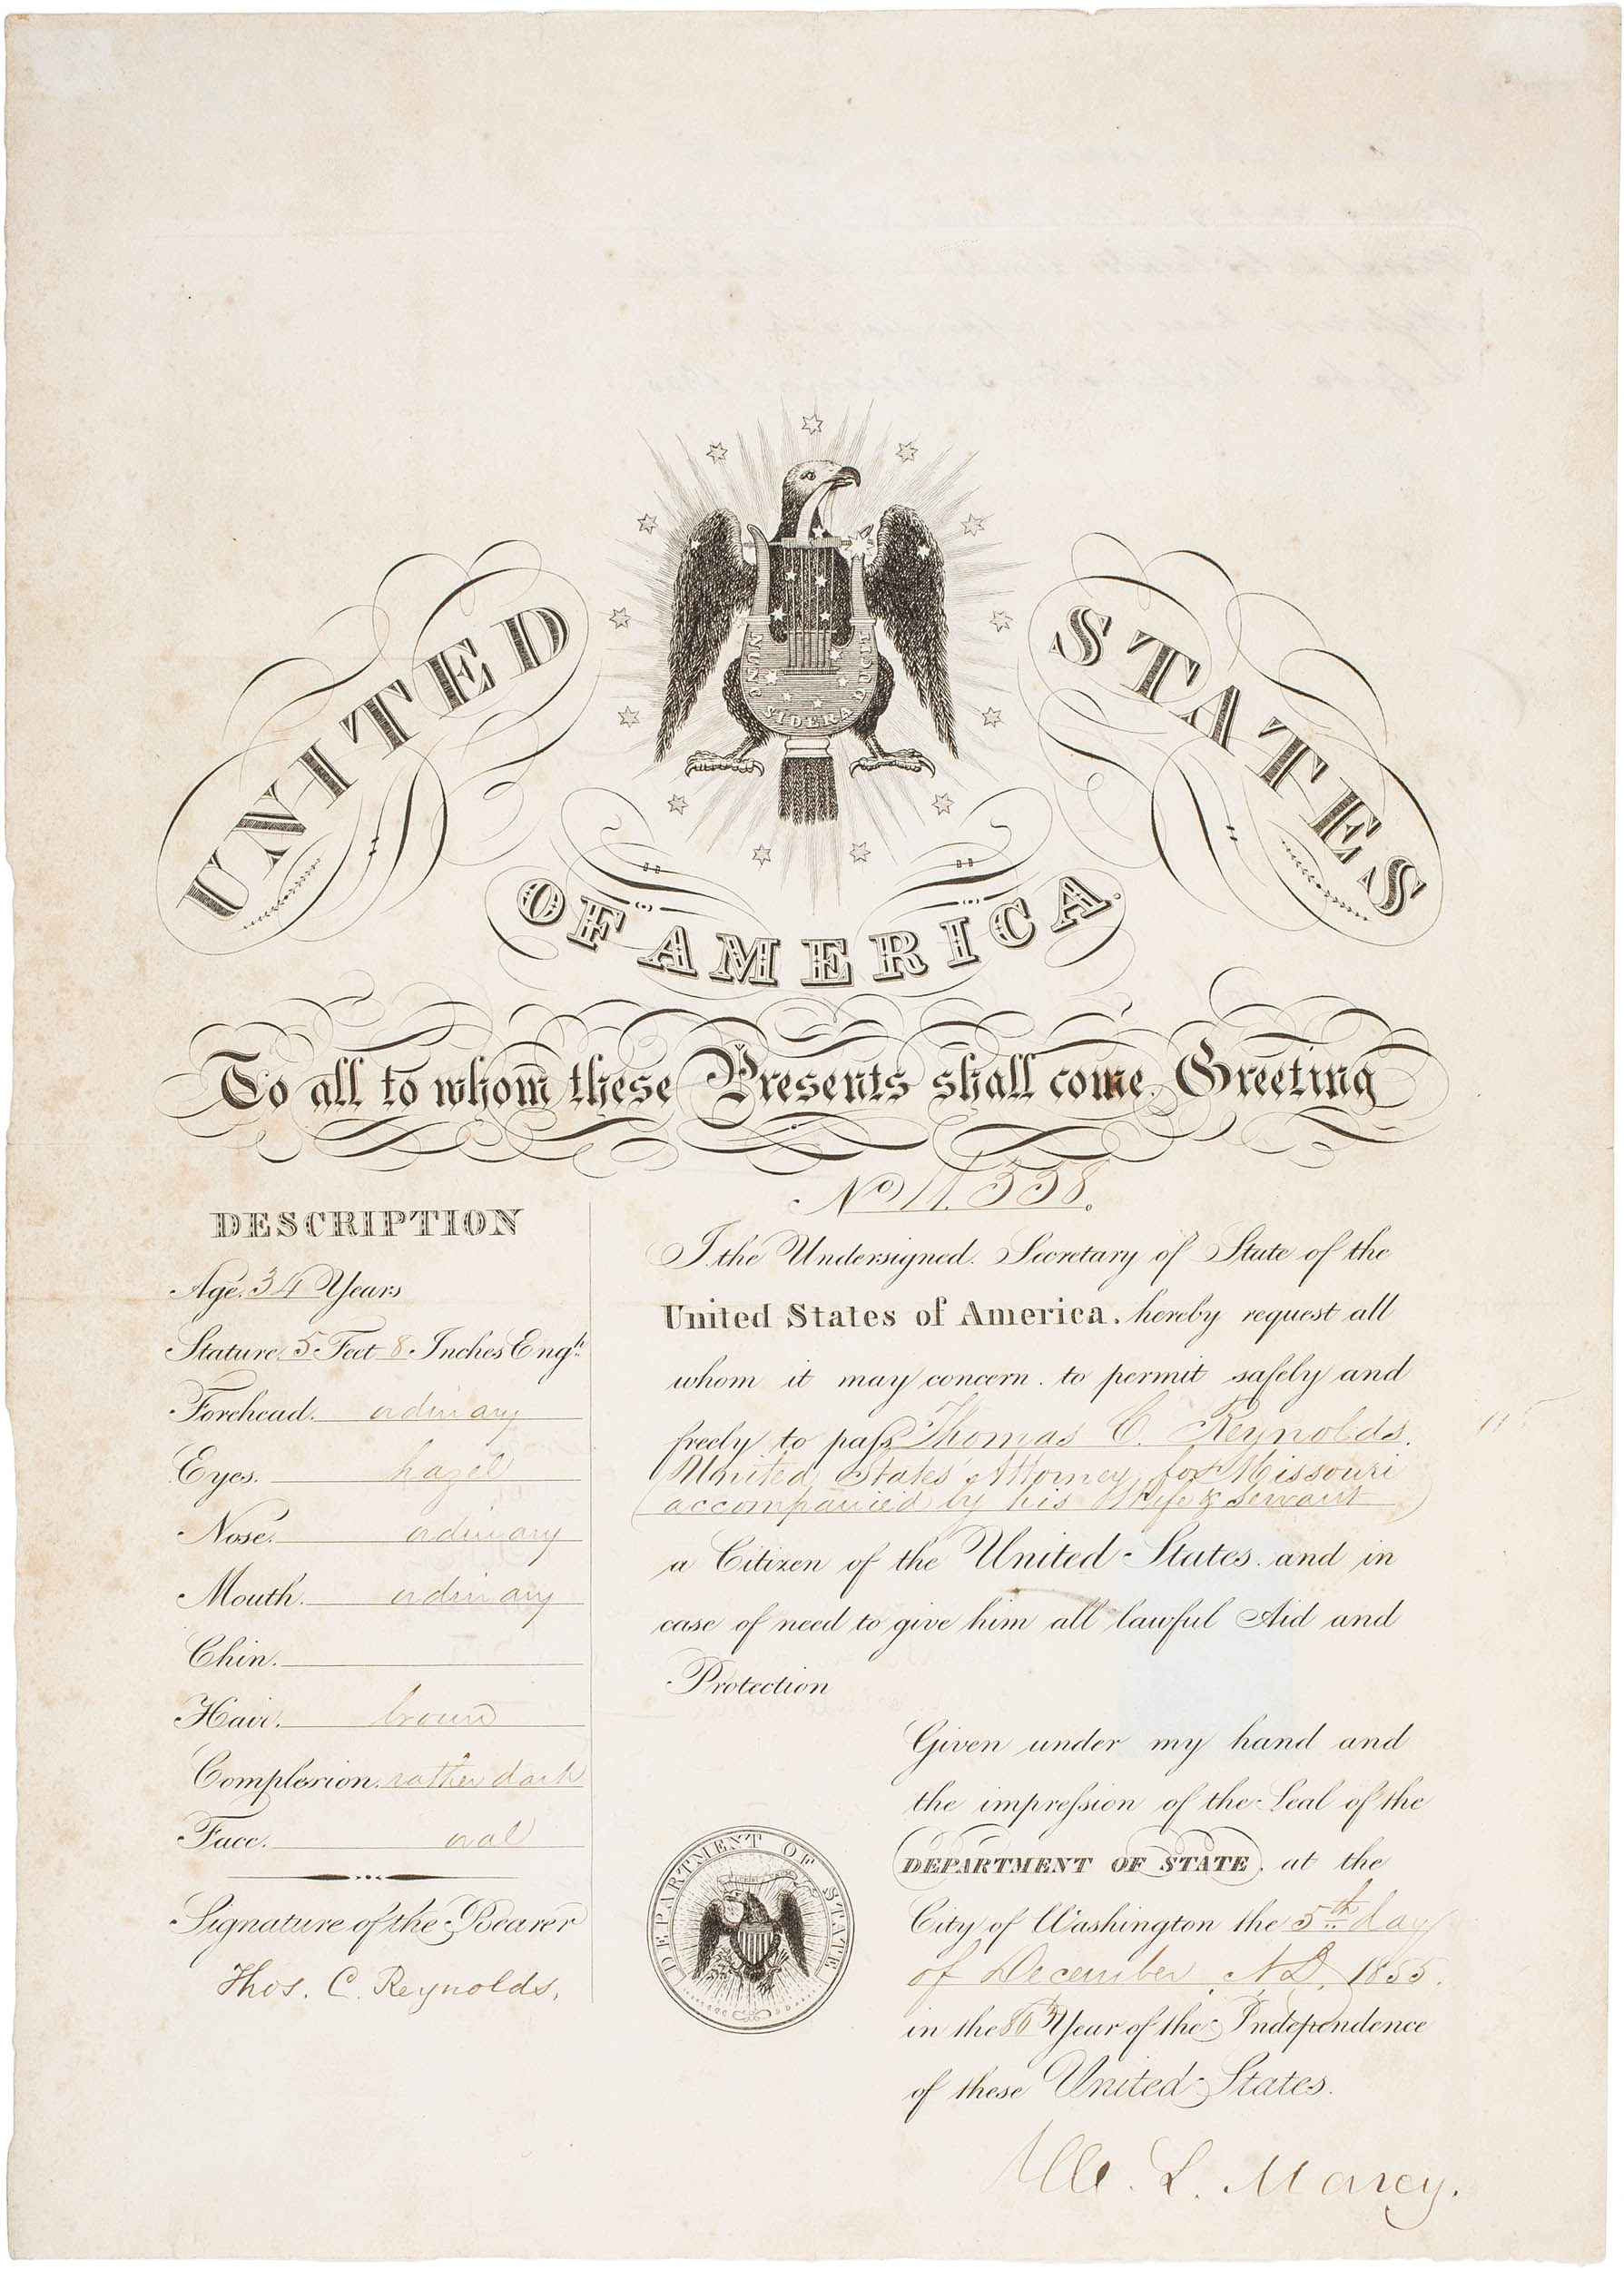 UNITED STATES
NUNC SIDERA DUCIT
OF AMERICA.
To all to whom these Presents shall come Greeting
No 11.358.
DESCRIPTION
Age. 34 Years
Stature, 5 Feet 8 Inches Engh.
Forehead. ordinary
Eyes. hazel
Nose. ordinary
Mouth. ordinary
Chin.
Hair. brown
Complexion. rather dark
Face. oval
Signature of the Bearer
Thos. C. Reynolds,
I. the Undersigned. Secretary of State of the
United States of America, hereby request all
whom it may concern. to permit safely and
freely to pass Thomas C. Reynolds.
United States' Attorney for Missouri
accompanied by his Wife & Servant
a Citizen of the United States. and in
case of need to give him all lawful Aid and
Protection
Given under my hand and
the impression of the Seal of the
DEPARTMENT OF STATE, at the
City of Washington the 5th day
of December A.D. 1855.
in the 80th Year of the Independence
of these United States.
DEPARTMENT OF STATE
W. L. Marcy.